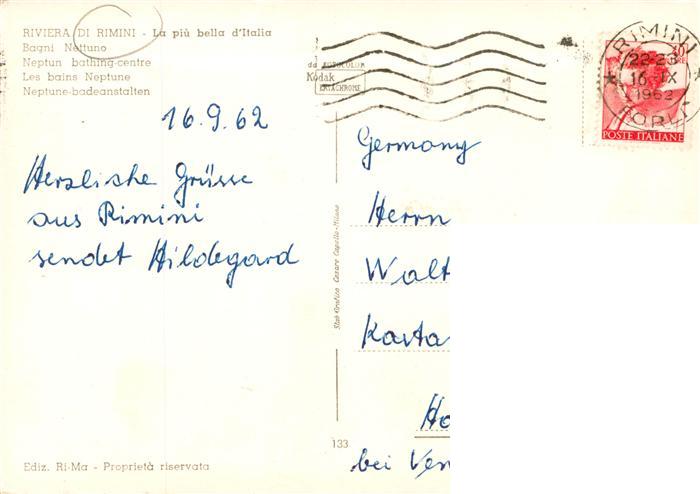 RIVIERA DI RIMINI - La più bella d'Italia
Bagni Nettuno
Neptun bathing-centre
Les bains Neptune
Neptune-badeanstalten
16.9.62
Herzliche Grüsse
aus Rimini
sendet Hildegard
Ediz. Ri-Ma - Proprietà riservata
Kodak
EKTACHROME
Stab. Grafico Cesare Capello-Milano
133
RIMINI
22-23
16 IX
1962
FORLI
POSTE ITALIANE
Germany
Herrn
Walt
Kasta
Ho
bei Ven